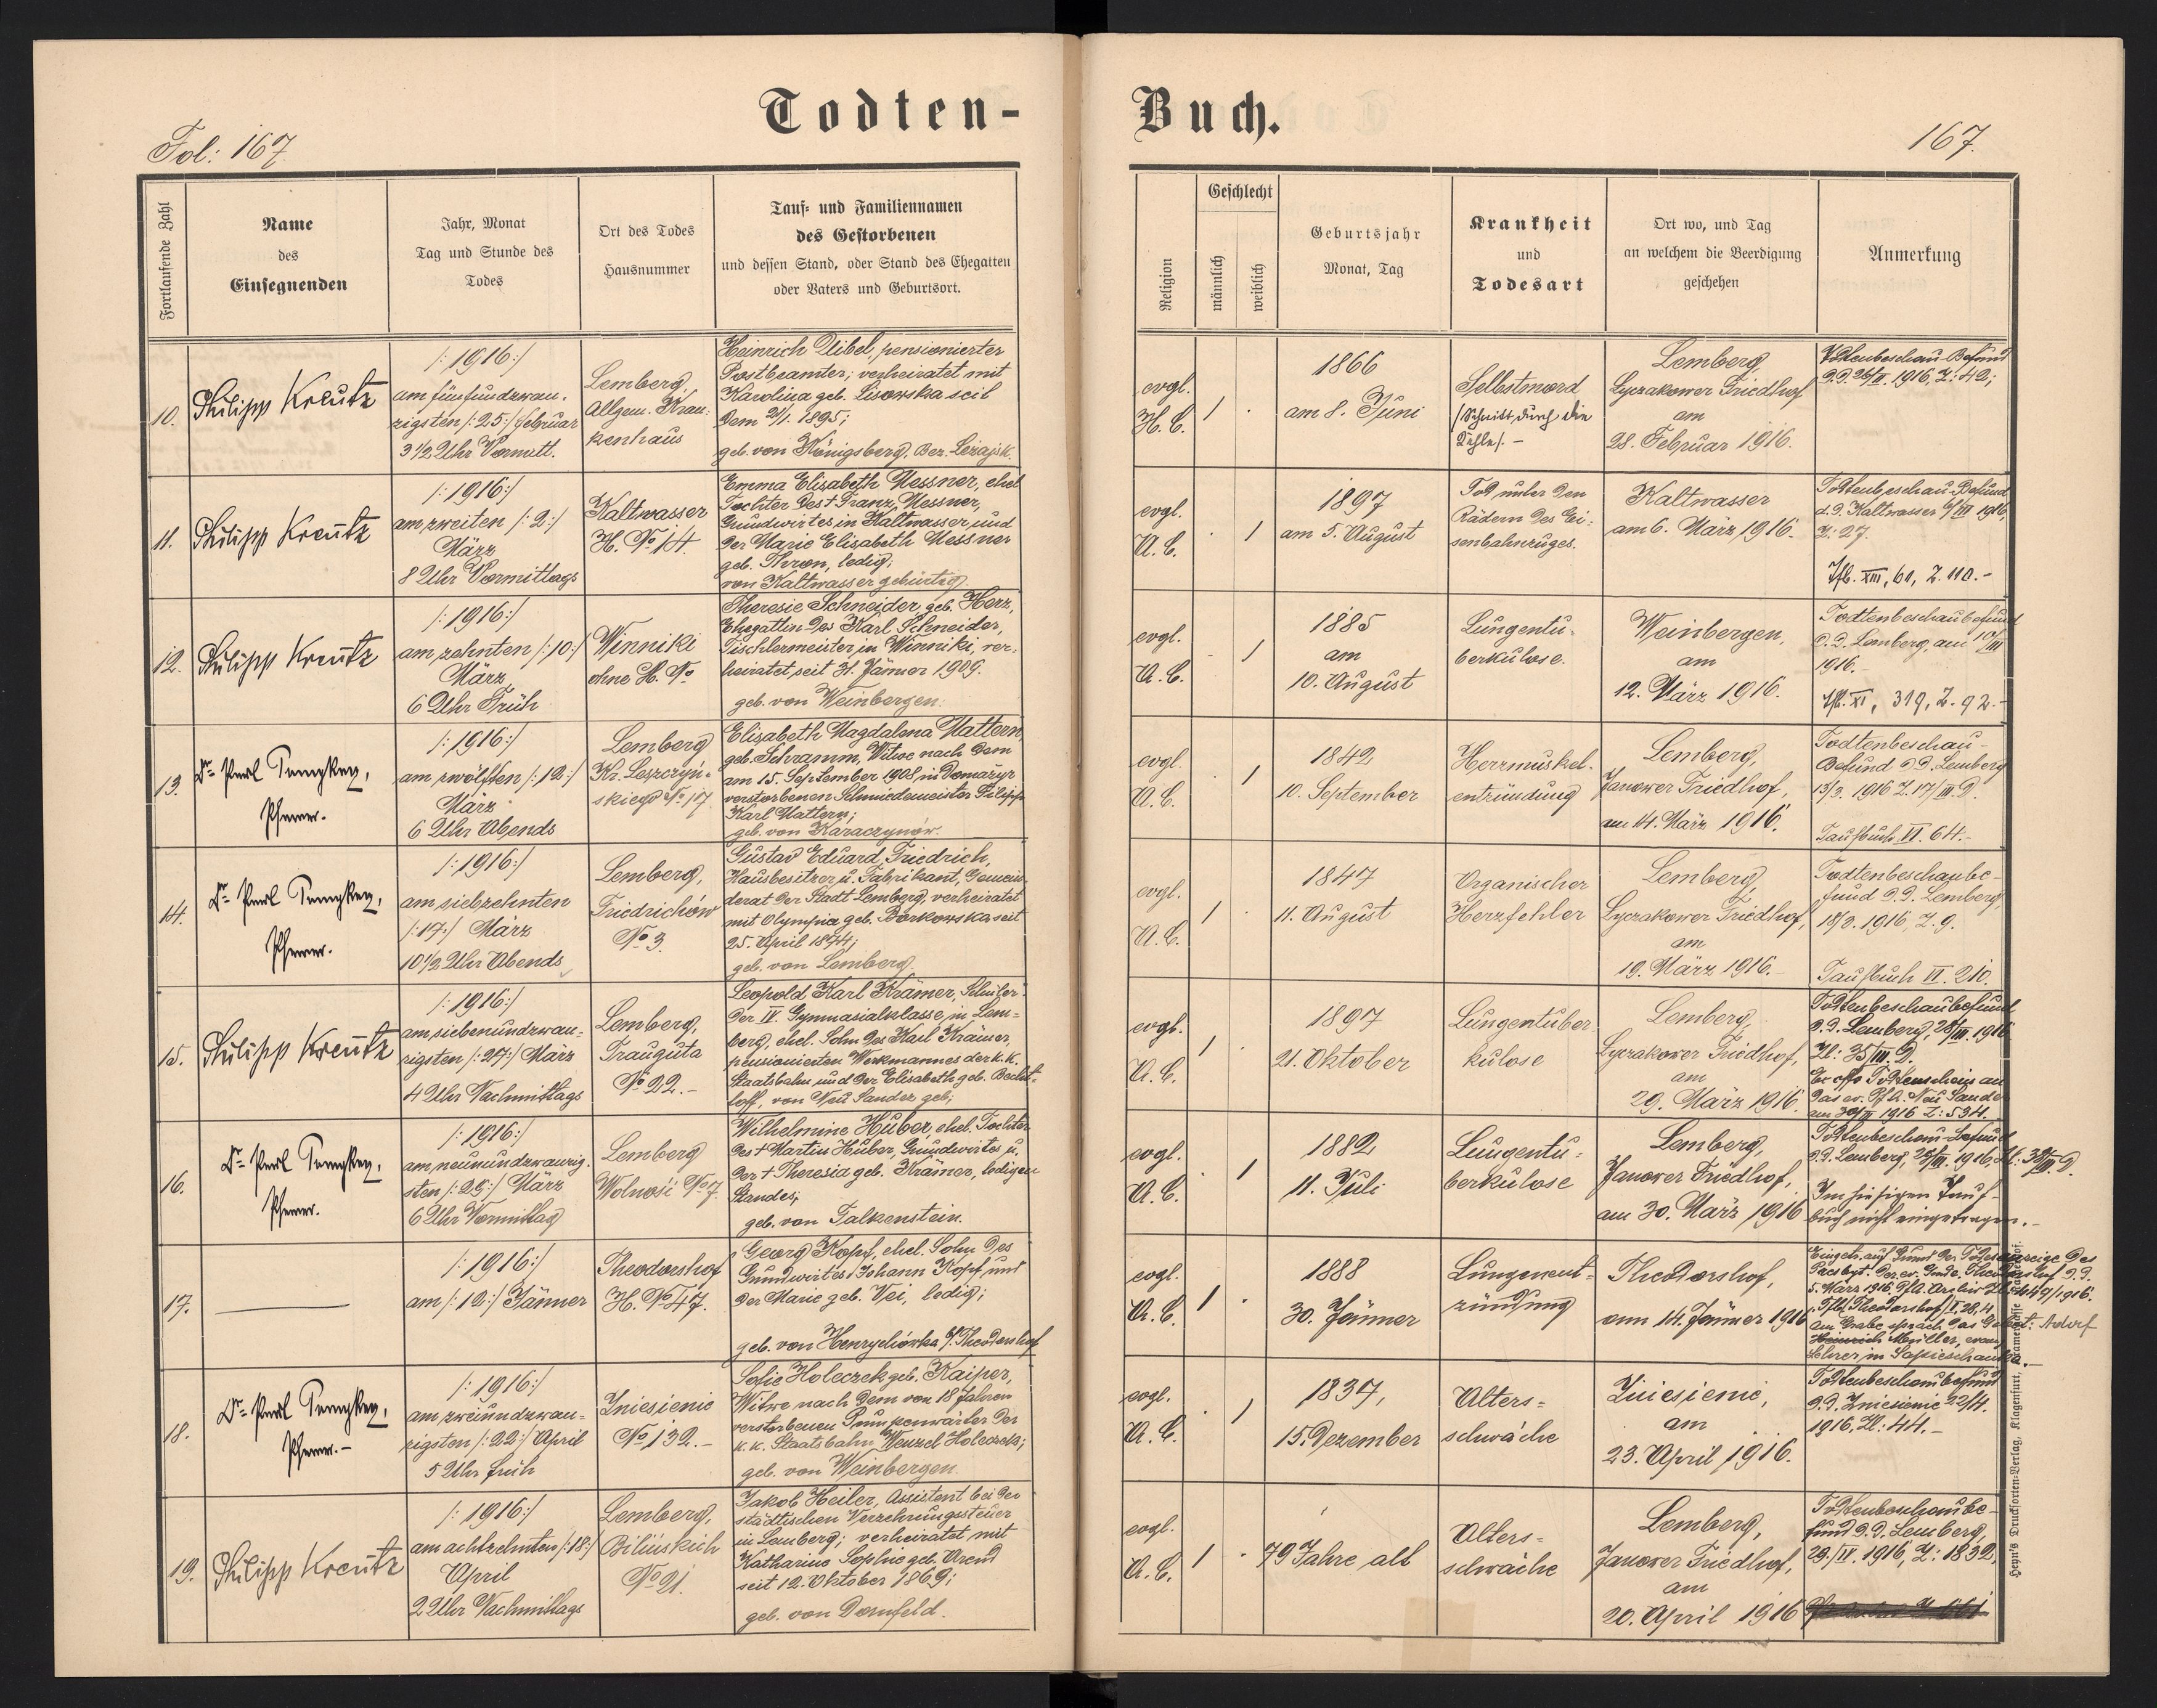 Todten-
Buch.
Fol: 167
167.
Fortlaufende Zahl
Name
des
Einsegnenden
Jahr, Monat
Tag und Stunde des
Todes
Ort des Todes
Hausnummer
Tauf- und Familiennamen
des Gestorbenen
und dessen Stand, oder Stand des Ehegatten
oder Vaters und Geburtsort.
Religion
Geschlecht
männlich
weiblich
Geburtsjahr
Monat, Tag
Krankheit
und
Todesart
Ort wo, und Tag
an welchem die Beerdigung
geschehen
Anmerkung
10.
Philipp Kreutz
/:1916:/
am fünfundzwan-
zigsten /:25:/ Februar
3 1/2 Uhr Vormitt.
Lemberg,
Allgem. Kran-
kenhaus
Heinrich Dibel, pensionierter
Postbeamter; verheiratet mit
Karolina geb. Lisowska seit
dem 2/1. 1895;
geb. von Königsberg, Bez. Lezajsk.
evgl.
H. C.
/ .
1866
am 8. Juni
Selbstmord
/Schnitt durch die
Kehle/. -
Lemberg,
Lyczakower Friedhof
am
28. Februar 1916.
Todtenbeschau-Befund
d.d. 26/II. 1916, Z: 42;
11.
Philipp Kreutz
/:1916:/
am zweiten /:2:/
März
8 Uhr Vormittags
Kaltwasser
H. No 14.
Emma Elisabeth Messner, ehel.
Tochter des + Franz Messner,
Grundwirtes in Kaltwasser und
der Marie Elisabeth Messner
geb. Thron, ledig;
von Kaltwasser gebürtig.
evgl.
A. C.
. /
1897
am 5. August
Tod unter den
Rädern des Ei-
senbahnzuges.
Kaltwasser
am 6. März 1916.
Todtenbeschau-Befund
d.d. Kaltwasser 6/III 1916,
Z: 27.
Tfb. XIII, 61, Z. 110.-
12.
Philipp Kreutz
/:1916:/
am zehnten /:10:/
März
6 Uhr Früh
Winniki
ohne H. No
Theresie Schneider, geb. Herz,
Ehegattin des Karl Schneider,
Tischlermeister in Winniki, ver-
heiratet seit 31. Jänner 1909.
geb. von Weinbergen.
evgl.
A. C.
. /
1885
am
10. August
Lungentu-
berkulose.
Weinbergen,
am
12. März 1916.
Todtenbeschaubefund
d.d. Lemberg, am 10/III
1916.-
Tfb. XI, 319, Z. 92.-
13.
Dr.
Pfarrer.
/:1916:/
am zwölften /:12:/
März
6 Uhr Abends
Lemberg
Kr. Leszczyń-
skiego No 17.
Elisabeth Magdalena Mattern
geb. Schramm, Witwe nach dem
am 15. September 1908, in Domazyr
verstorbenen Schmiedemeister Filipp
Karl Mattern;
geb. von Karaczynów.
evgl.
A. C.
. /
1842
10. September
Herzmuskel-
entzündung
Lemberg,
Janower Friedhof,
am 14. März 1916.
Todtenbeschau-
Befund d.d. Lemberg
13/3. 1916 Z. 17/III. D.
Taufbuch VI. 64.-
14.
Dr.
Pfarrer.
/:1916:/
am siebzehnten
/:17:/ März
10 1/2 Uhr Abends
Lemberg,
Friedrichów
No 3.
Gustav Eduard Friedrich,
Hausbesitzer u. Fabrikant, Gemein-
derat der Stadt Lemberg, verheiratet
mit Olympia geb. Borkowska seit
25. April 1874;
geb. von Lemberg.
evgl.
A. C.
/ .
1847
11. August
Organischer
Herzfehler
Lemberg,
Lyczakower Friedhof,
am
19. März 1916.-
Todtenbeschaube-
fund d.d. Lemberg,
18/3. 1916, Z. 9.
Taufbuch VI. 210.
15.
Philipp Kreutz
/:1916:/
am siebenundzwan-
zigsten /:27:/ März
4 Uhr Nachmittags
Lemberg,
Trauguta
No 22.-
Leopold Karl Krämer, Schüler
der IV. Gymnasialklasse in Lem-
berg, ehel. Sohn des Karl Krämer,
pensionierten Werkmannes der k.k.
Staatsbahn und der Elisabeth geb. Becht-
loff, von Neu Sandez geb;
evgl.
A. C.
/ .
1897
21. Oktober
Lungentuber
kulose
Lemberg,
Lyczakower Friedhof,
am
29. März 1916.
Todtenbeschaubefund
d.d. Lemberg, 28/III. 1916
Zl: 35/III. D.
Ex offo Todtenschein an
das ev. Pf.A. Neu Sandez
1916 Z: 534.
16.
Dr.
Pfarrer.
/:1916:/
am neunundzwanzig-
sten /:29:/ März
6 Uhr Vormittag
Lemberg
Wolność No 7.
Wilhelmine Huber, ehel. Tochter
des + Martin Huber, Grundwirtes u.
der + Theresia geb. Krämer, ledigen
Standes;
geb. von Falkenstein.
evgl.
A. C.
. /
1882
11. Juli
Lungentu-
berkulose
Lemberg,
Janower Friedhof,
am 30. März 1916
Todtenbeschau-Befund
d.d. Lemberg, 29/III. 1916, Zl: 38/III. D.
Im hiesigen Tauf-
buch nicht eingetragen.-
17.
/:1916:/
am /:12:/ Jänner
Theodorshof
H. No 47.
Georg Kopf, ehel. Sohn des
Grundwirtes Johann Kopf und
der Marie geb. Nei, ledig;
geb. von Henrychówka b/Theodorshof
evgl.
A. C.
/ .
1888
30. Jänner
Lungenent-
zündung
Theodorshof,
am 14. Jänner 1916
Eingetr. auf Grund der Todesanzeige des
Presbyt. der ev. Gmde. Theodorshof d.d.
5. März 1916, Pfl. Archiv
Am Grabe sprach das Gebet: Adolf
Heinrich Müller, evang.
Lehrer in Sapieschanka.-
18.
Dr.
Pfarrer.-
/:1916:/
am zweiundzwan-
zigsten /:22:/ April
5 Uhr früh
Zniesienie
No 132.-
Sofie Holeczek geb. Kaiper,
Witwe nach dem vor 18 Jahren
verstorbenen Pumpenwärter der
k.k. Staatsbahn, Wenzel Holeczek;
geb. von Weinbergen.
evgl.
A. C.
. /
1837,
15. Dezember
Alters-
schwäche
Zniesienie,
am
23. April 1916.
Todtenbeschaubefund
d.d. Zniesienie 22/4.
1916, Zl: 44.-
19.
Philipp Kreutz
/:1916:/
am achtzehnten /:18:/
April
2 Uhr Nachmittags
Lemberg,
Bilińskich
No 21.
Jakob Heiler, Assistent bei der
städtischen Verzehrungssteuer
in Lemberg; verheiratet mit
Katharine Sophie geb. Arend
seit 12. Oktober 1869;
geb. von Dornfeld.
evgl.
A. C.
/ .
79 Jahre alt
Alters-
schwäche
Lemberg,
Janower Friedhof,
am
20. April 1916
Todtenbeschaube-
fund d.d. Lemberg,
29./IV. 1916, Z: 1832.
Heyn's Drucksorten-Verlag, Klagenfurt, Kramergasse